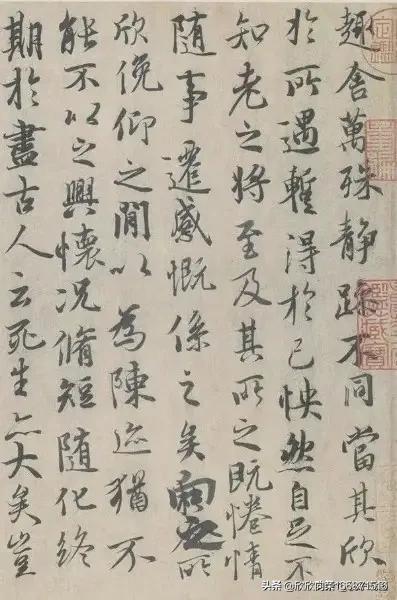 趣舍萬殊静躁不同當其欣
於所遇暫得於己怏然自足不
知老之將至及其所之既惓情
随事遷感慨係之矣向之所
欣俛仰之閒以為陳迹猶不
能不以之興懷況脩短随化終
期於盡古人云死生亦大矣豈
头条@欣欣向荣